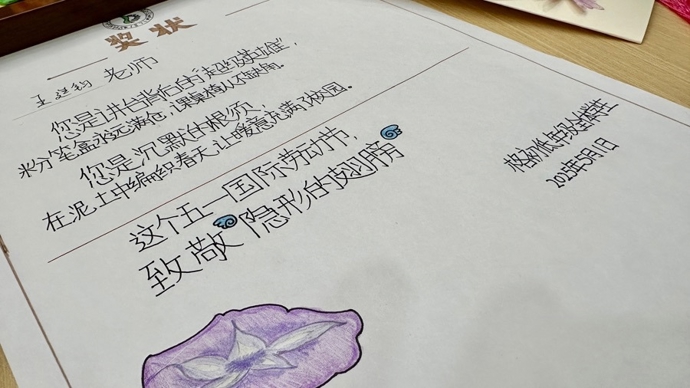 奖状
王 老师
您是讲台背后的“超级英雄”,
粉笔盒永远满仓,课桌椅从不缺角。
您是沉默的根须,
在泥土中编织春天,让暖意充满了校园。
这个五一国际劳动节,
致敬隐形的翅膀
2025年5月1日